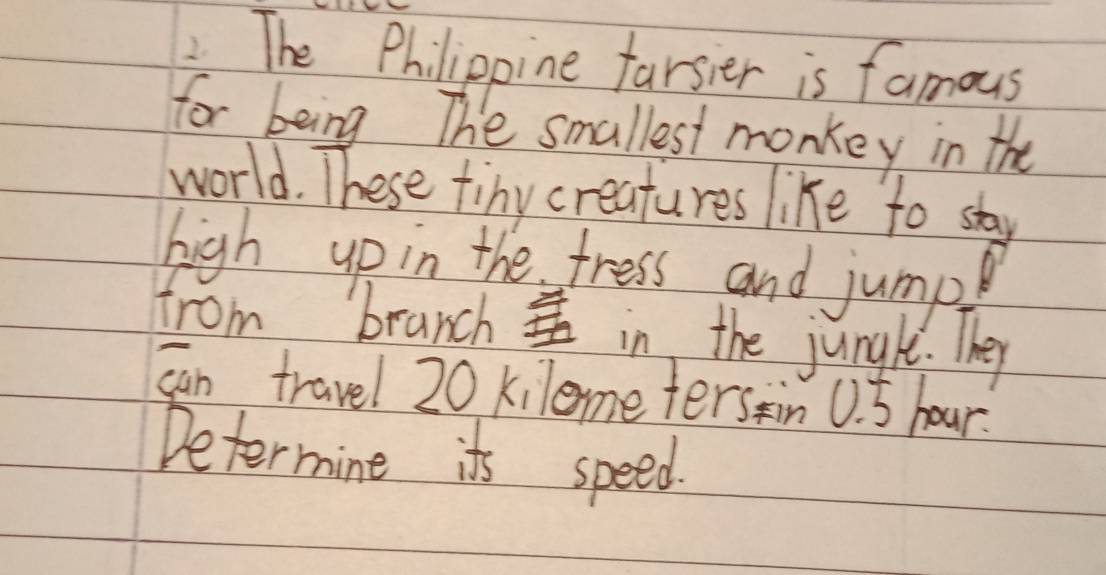 2. The Philippine tarsier is famous
for being The smallest monkey in the
world. These tiny creatures like to stay
high up in the tress and jump
from branch in the jungle. They
can travel 20 kilometers in 0.5 hour.
Determine its speed.